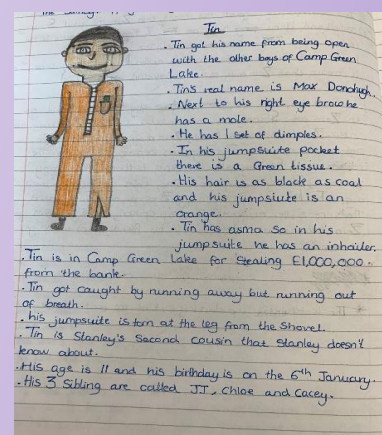 Tin
. Tin got his name from being open
with the other boys of Camp Green
Lake.
. Tin's real name is Max Donohugh.
. Next to his right eye brow he
has a mole.
. He has 1 set of dimples.
. In his jumpsuite pocket
there is a Green tissue.
. His hair is as black as coal
and his jumpsiute is an
orange.
. Tin has asma so in his
jumpsuite he has an inhailer.
. Tin is in Camp Green Lake for Stealing £1,000,000.
from the bank.
. Tin got caught by running away but running out
of breath.
. his jumpsuite is torn at the leg from the shovel.
. Tin is Stanley's Second cousin that Stanley doesn't
know about.
. His age is 11 and his birthday is on the 6th January.
. His 3 Sibling are called JJ, Chloe and Cacey.